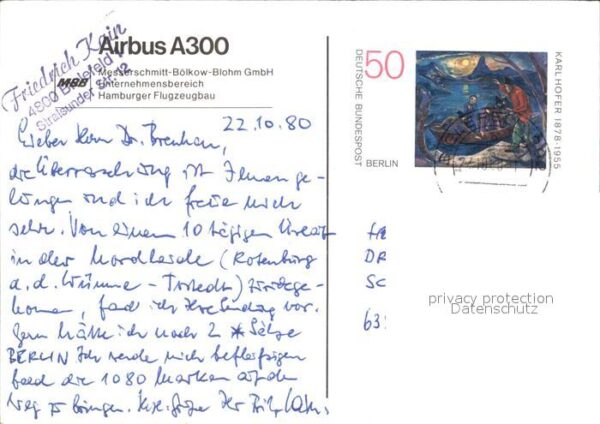 Friedrich Kain
4800 Bielefeld 1
Stralsunder Str. 12
Airbus A300
MBB Messerschmitt-Bölkow-Blohm GmbH
Unternehmensbereich
Hamburger Flugzeugbau
50
DEUTSCHE BUNDESPOST
BERLIN
KARL HOFER 1878-1955
22.10.80
Lieber Herr Dr.
die Überraschung ist Ihnen ge-
lungen und ich freue mich
sehr. Von einem 10 tägigen Urlaub
in der Nordheide (Rotenburg
a.d. Wümme - Tostedt) zurückge-
kommen, fand ich Ihre Sendung vor.
Gern hätte ich noch 2 * Sätze
BERLIN Ich werde mich befleißigen
bald die 1080 Marken auf den
Weg zu bringen. Ihr
DR
SC
63
privacy protection
Datenschutz